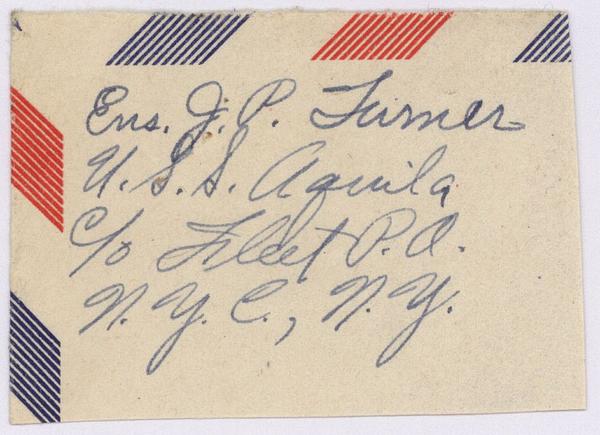 Ens. J. P. Turner
U.S.S. Aquila
c/o Fleet P.O.
N.Y.C., N.Y.